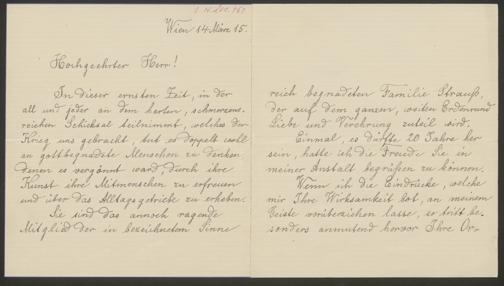 Wien 14 März 15.
Hochgeehrter Herr!
In dieser ernsten Zeit, in der
all und jeder an dem herben, schmerzens-
reichen Schicksal teilnimmt, welches der
Krieg uns gebracht, tut es doppelt wohl
an gottbegnadete Menschen zu denken
denen es vergönnt ward, durch ihre
Kunst ihre Mitmenschen zu erfreuen
und über das Alltagsgetriebe zu erheben.
Sie sind das annoch ragende
Mitglied der in bezeichnetem Sinne
reich begnadeten Familie Strauß,
der auf dem ganzen, weiten Erdenrund
Liebe und Verehrung zuteil wird.
Einmal, es dürfte 20 Jahre her
sein, hatte ich die Freude Sie in
meiner Anstalt begrüßen zu können.
Wenn ich die Eindrücke, welche
mir Ihre Wirksamkeit bot, an meinem
Geiste vorüberziehen lasse, so tritt be-
sonders anmutend hervor Ihre Or-